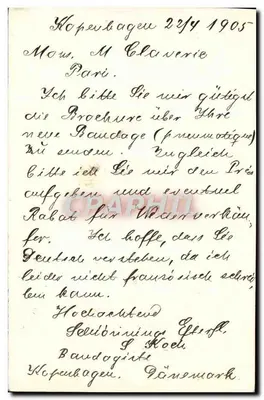 Kopenhagen 22/4 1905
Mons. M Claverie
Pari.
Ich bitte Sie mir gütigst
die Brochure über Ihre
neue Bandage (pneumotique)
zu senden. Zugleich
bitte ich Sie mir den Preis
aufgeben und eventuel
Rabat für Wiederverkäu-
fer. Ich hoffe, dass Sie
Deutsch verstehen, da ich
leider nicht französisch schrei-
ben kann.
Hochachtend
Efterfl.
S Koch
Bandagiste
Kopenhagen. Dänemark.